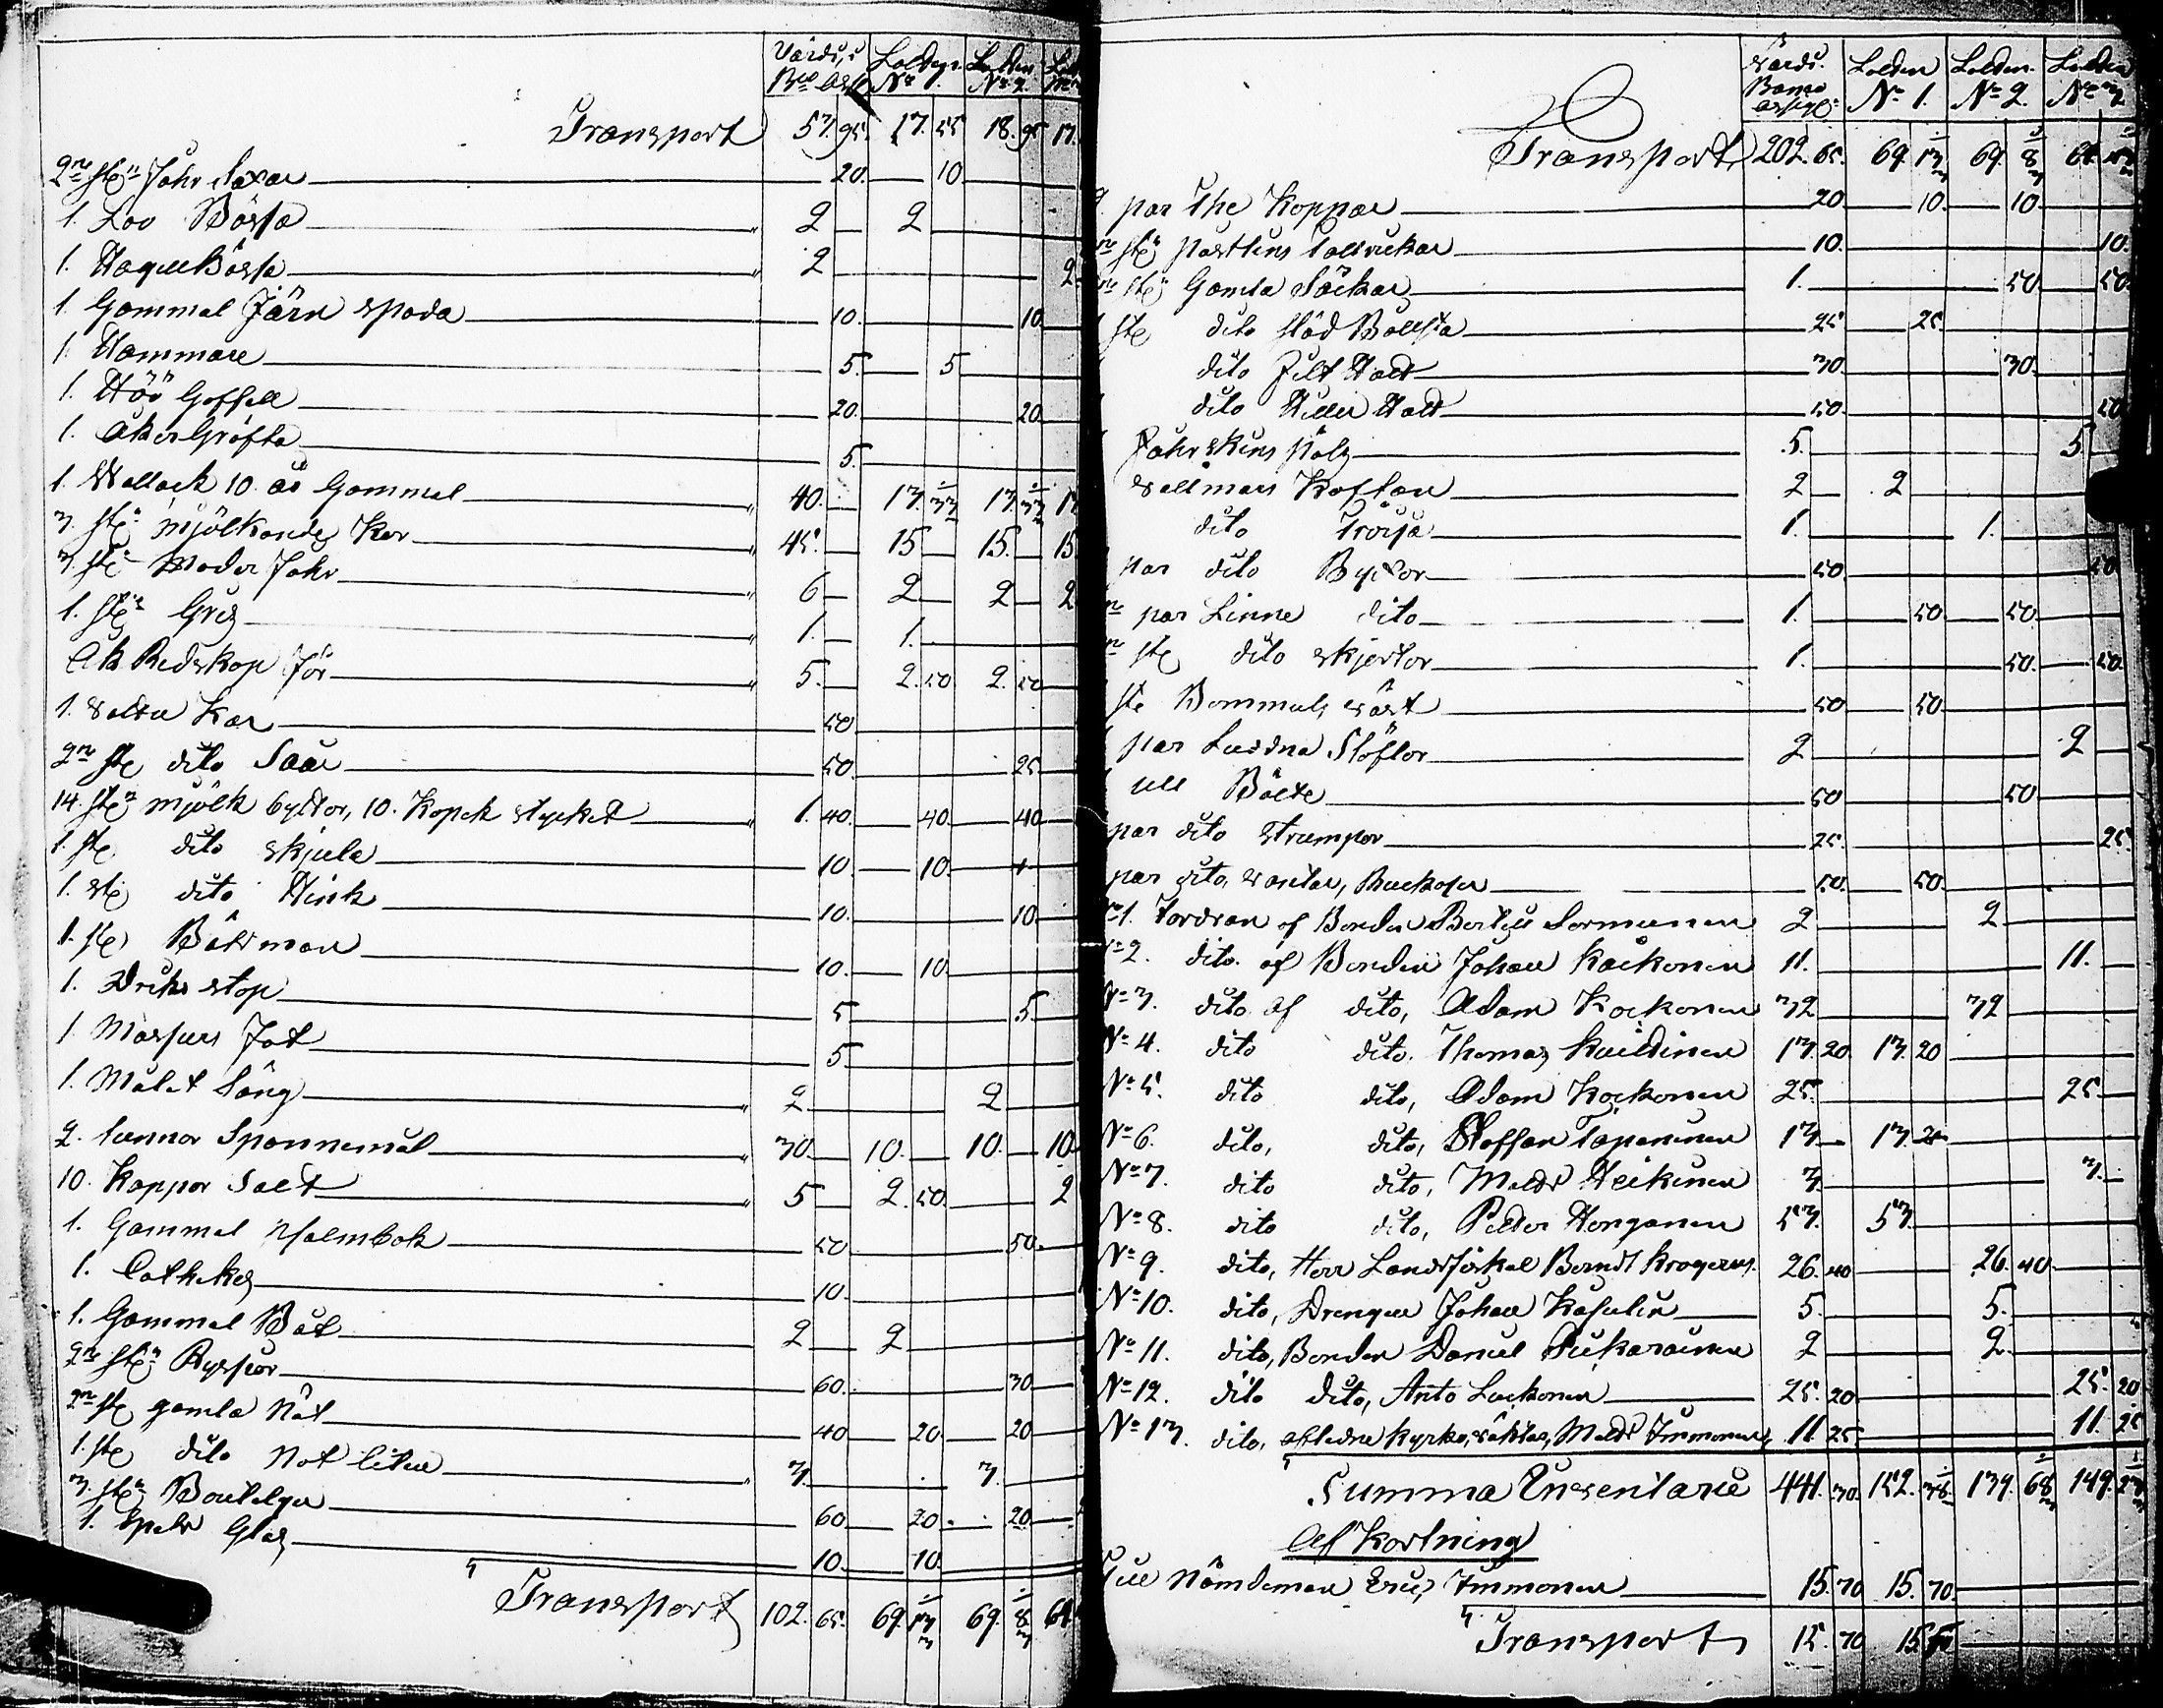 Värdi, i Bco Assg Lolden No 1. Lolden No 2.
Transport 57. 95. 17. 55 18. 95 17.
2ne st: Fåhr Saxar 20. 10
1. Loo Bössa 2 2
1. Hagelbössa 2 2
1. Gammal Järn spada 10. 10
1. Hammare 5. 5
1. Höö Gaffell 20. 20
1. Åker Gräfta 5.
1. Wallack 10. år Gammal 40. 13. 33 13. 33 13
3. st: mjölkande Kor 45. 15 15. 15
3. st: Moder Fåhr 6 2 2 2
1. st: Gris 1. 1.
Åk Redskap för 5. 2. 50 2. 50
1. Kar 50
2ne st: dito Såår 50. 25
14. st: mjölk byttor, 10. Kopek stycket 1. 40. 40. 40
1. st: dito skjula 10 10
1. st: dito Hink 10. 10
1. st: 10. 10
1. Dricks stop 5 5
1. Fat 5
1. Målat Säng 2 2
2. tunnor Spannemål 30. 10. 10. 10
10. Kappor Salt 5 2. 50. 2
1. Gammal Psalmbok 50 50.
1. Cathekes 10.
1. Gammal Båt 2 2
2ne st: Ryssior 60. 30
2ne st: gamla Nät 40 20. 20
1. st: dito Not liten 3. 3.
3. st: Bouteljer 60 20 20
1. Glas 10. 10.
Transport 102. 65. 69. 13 69. 8 64
Värdi. Banco Assign: Lolden No 1. Lolden No 2. Lolden No 3
Transport 202. 65. 69. 13 69. 8 64
par The Koppar 20 10. 10.
st: postlins 10. 10.
st: Gamla Säckar 1. 50. 50.
st: dito 25 25
dito Filt Hatt 30 30.
dito Hatt 50 50
Fåhrskins päls 5. 5
wallmars Kaftan 2 2
dito Tröija 1. 1.
par dito Byxor 50 50
par Linne dito 1. 50. 50.
st: dito skjortor 1. 50. 50.
st: Bommuls wäst 50 50
par Stöflor 2 2
ull Bälte 50 50
par dito strumpor 25. 25.
par dito, wantar, 50. 50.
No 1. Fordran af Bonden Sormunen 2 2
No 2. dito af Bonden Johan Kaikonen 11. 11.
No 3. dito af dito, Adam Kockonen 32 32
No 4. dito dito, Thomas 13. 20 13. 20
No 5. dito dito, Adam Kockonen 25. 25
No 6. dito, dito, Staffan Tapaninen 13 13.
No 7. dito dito, Matts Heikinen 3 3.
No 8. dito dito, Petter Honganen 53. 53.
No 9. dito, Herr Landsfiskal Berndt Krogerus 26. 40 26. 40
No 10. dito, Drengen Johan 5. 5.
No 11. dito, Bonden Daniel Pukarainen 2 2.
No 12. dito dito, Anto Lackonen 25. 20 25. 20
No 13. dito, afledne kyrko,wäktar, Matts Immonen 11. 25 11. 25
Summa Inventarie 441. 30. 152. 38 139. 68 149. 23
Af Kortning
Till Nämdeman Eric, Immonen 15. 70 15. 70.
Transport 15. 70 15.